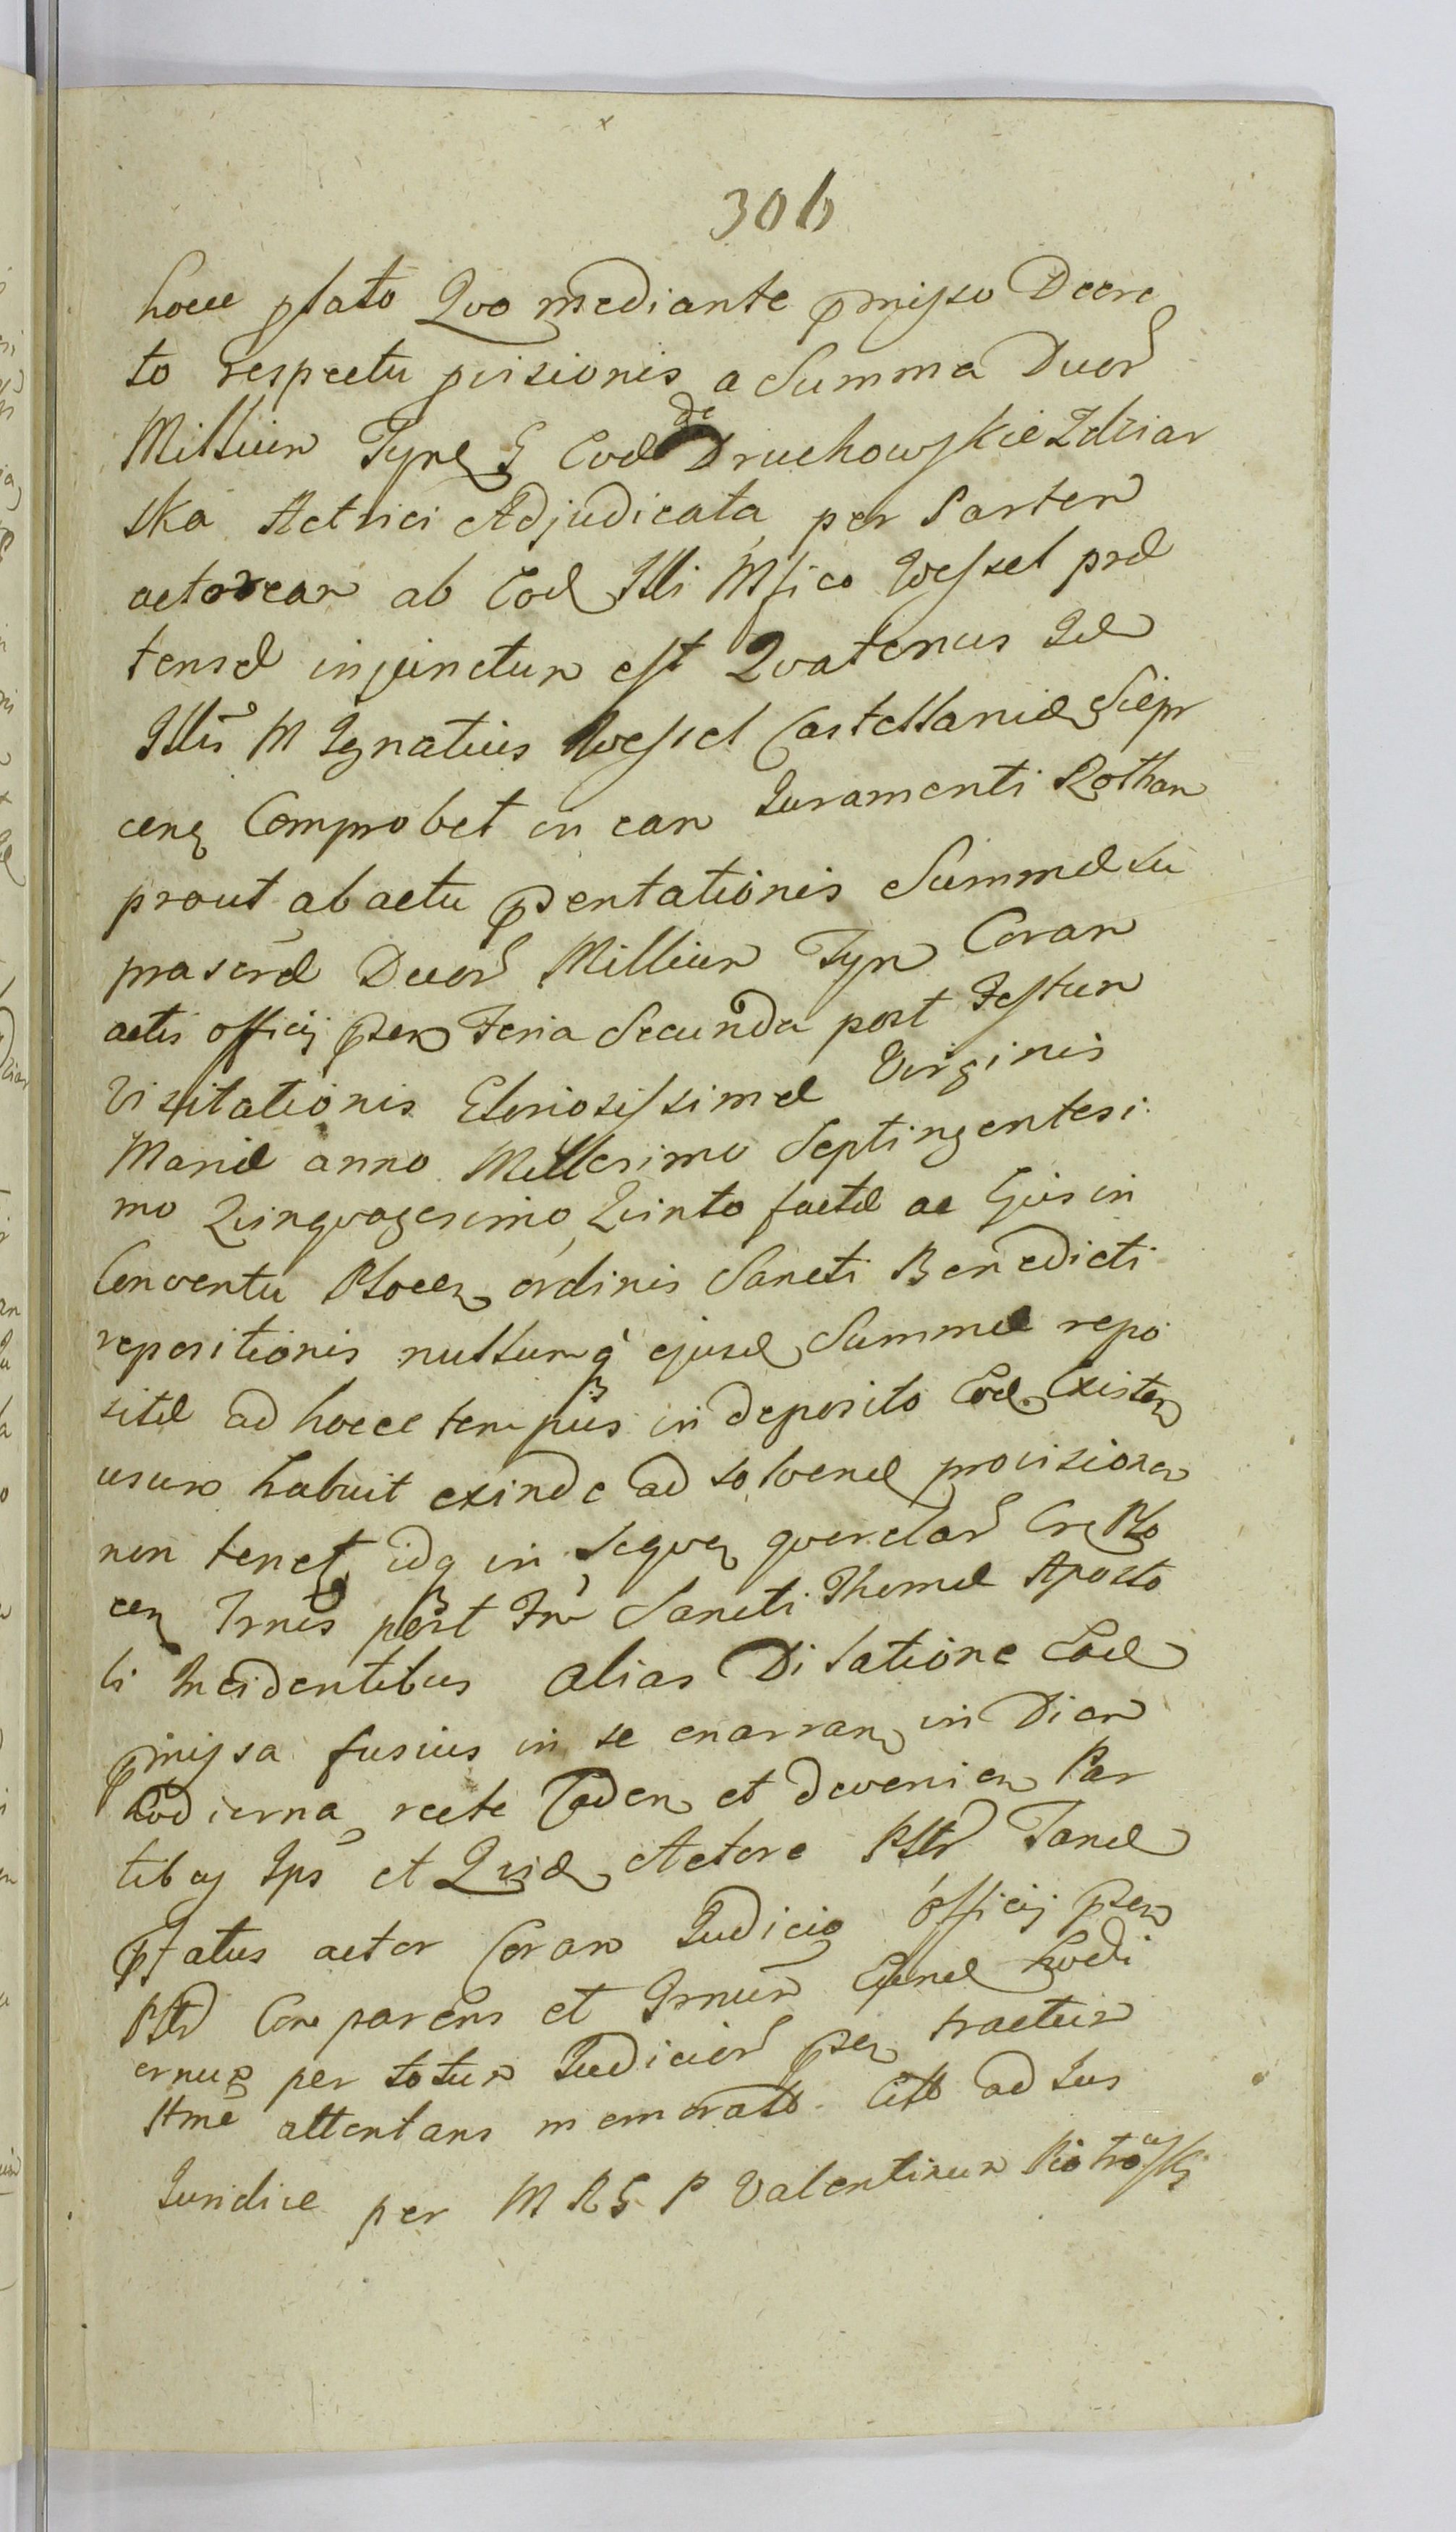 306
hocce pstato Quo mediante pmisso Decre
to respectu pvisionis a Summa Duor
Millium Typl G Eod de Druchowskie Zdziar
ska Actrici Adjudicata per Partem
actoream ab Eod Illi Mfico Wessel prae
tensae injunctum est Quatenus Id
Illis M Ignatius Wessel Castellanid Siepr
cens Comprobet in eam Juramenti Rotham
prout ab actu psentationis Summae su
praser Duor Millium Typ Coram
actis officij psen Feria Secunda post Festum
Visitationis Gloriosissimae Virginis
Mariae anno Millesimo Septingentesi
mo Quinquagesimo Quinto factae ac Ejus in
Conventu Plocen ordinis Sancti Benedicti
repositionis nullumq ejusd Summae repo
sitae ad hocce tempus in deposito Eod Existen
usum habuit exinde ad solvend provisionem
non tenet idq in sequen querelar Cre Plo
cen Trnis post Fm Sancti Thomae Aposto
li Incidentibus alias Dilatione Eod
pmissa fusius in se enarran in Diem
hodierna recte Caden et devenien Par
tibus Ips et Quid Actore Pltr Taned
pfatus actor Coram Judicio officij psen
Pltr Comparens et Trnum hodi
ernum per totum Judicior psen tractum
Itme attentans memorato Citto ad Jus
Juridice per M R G P Valentinum Piotrowski